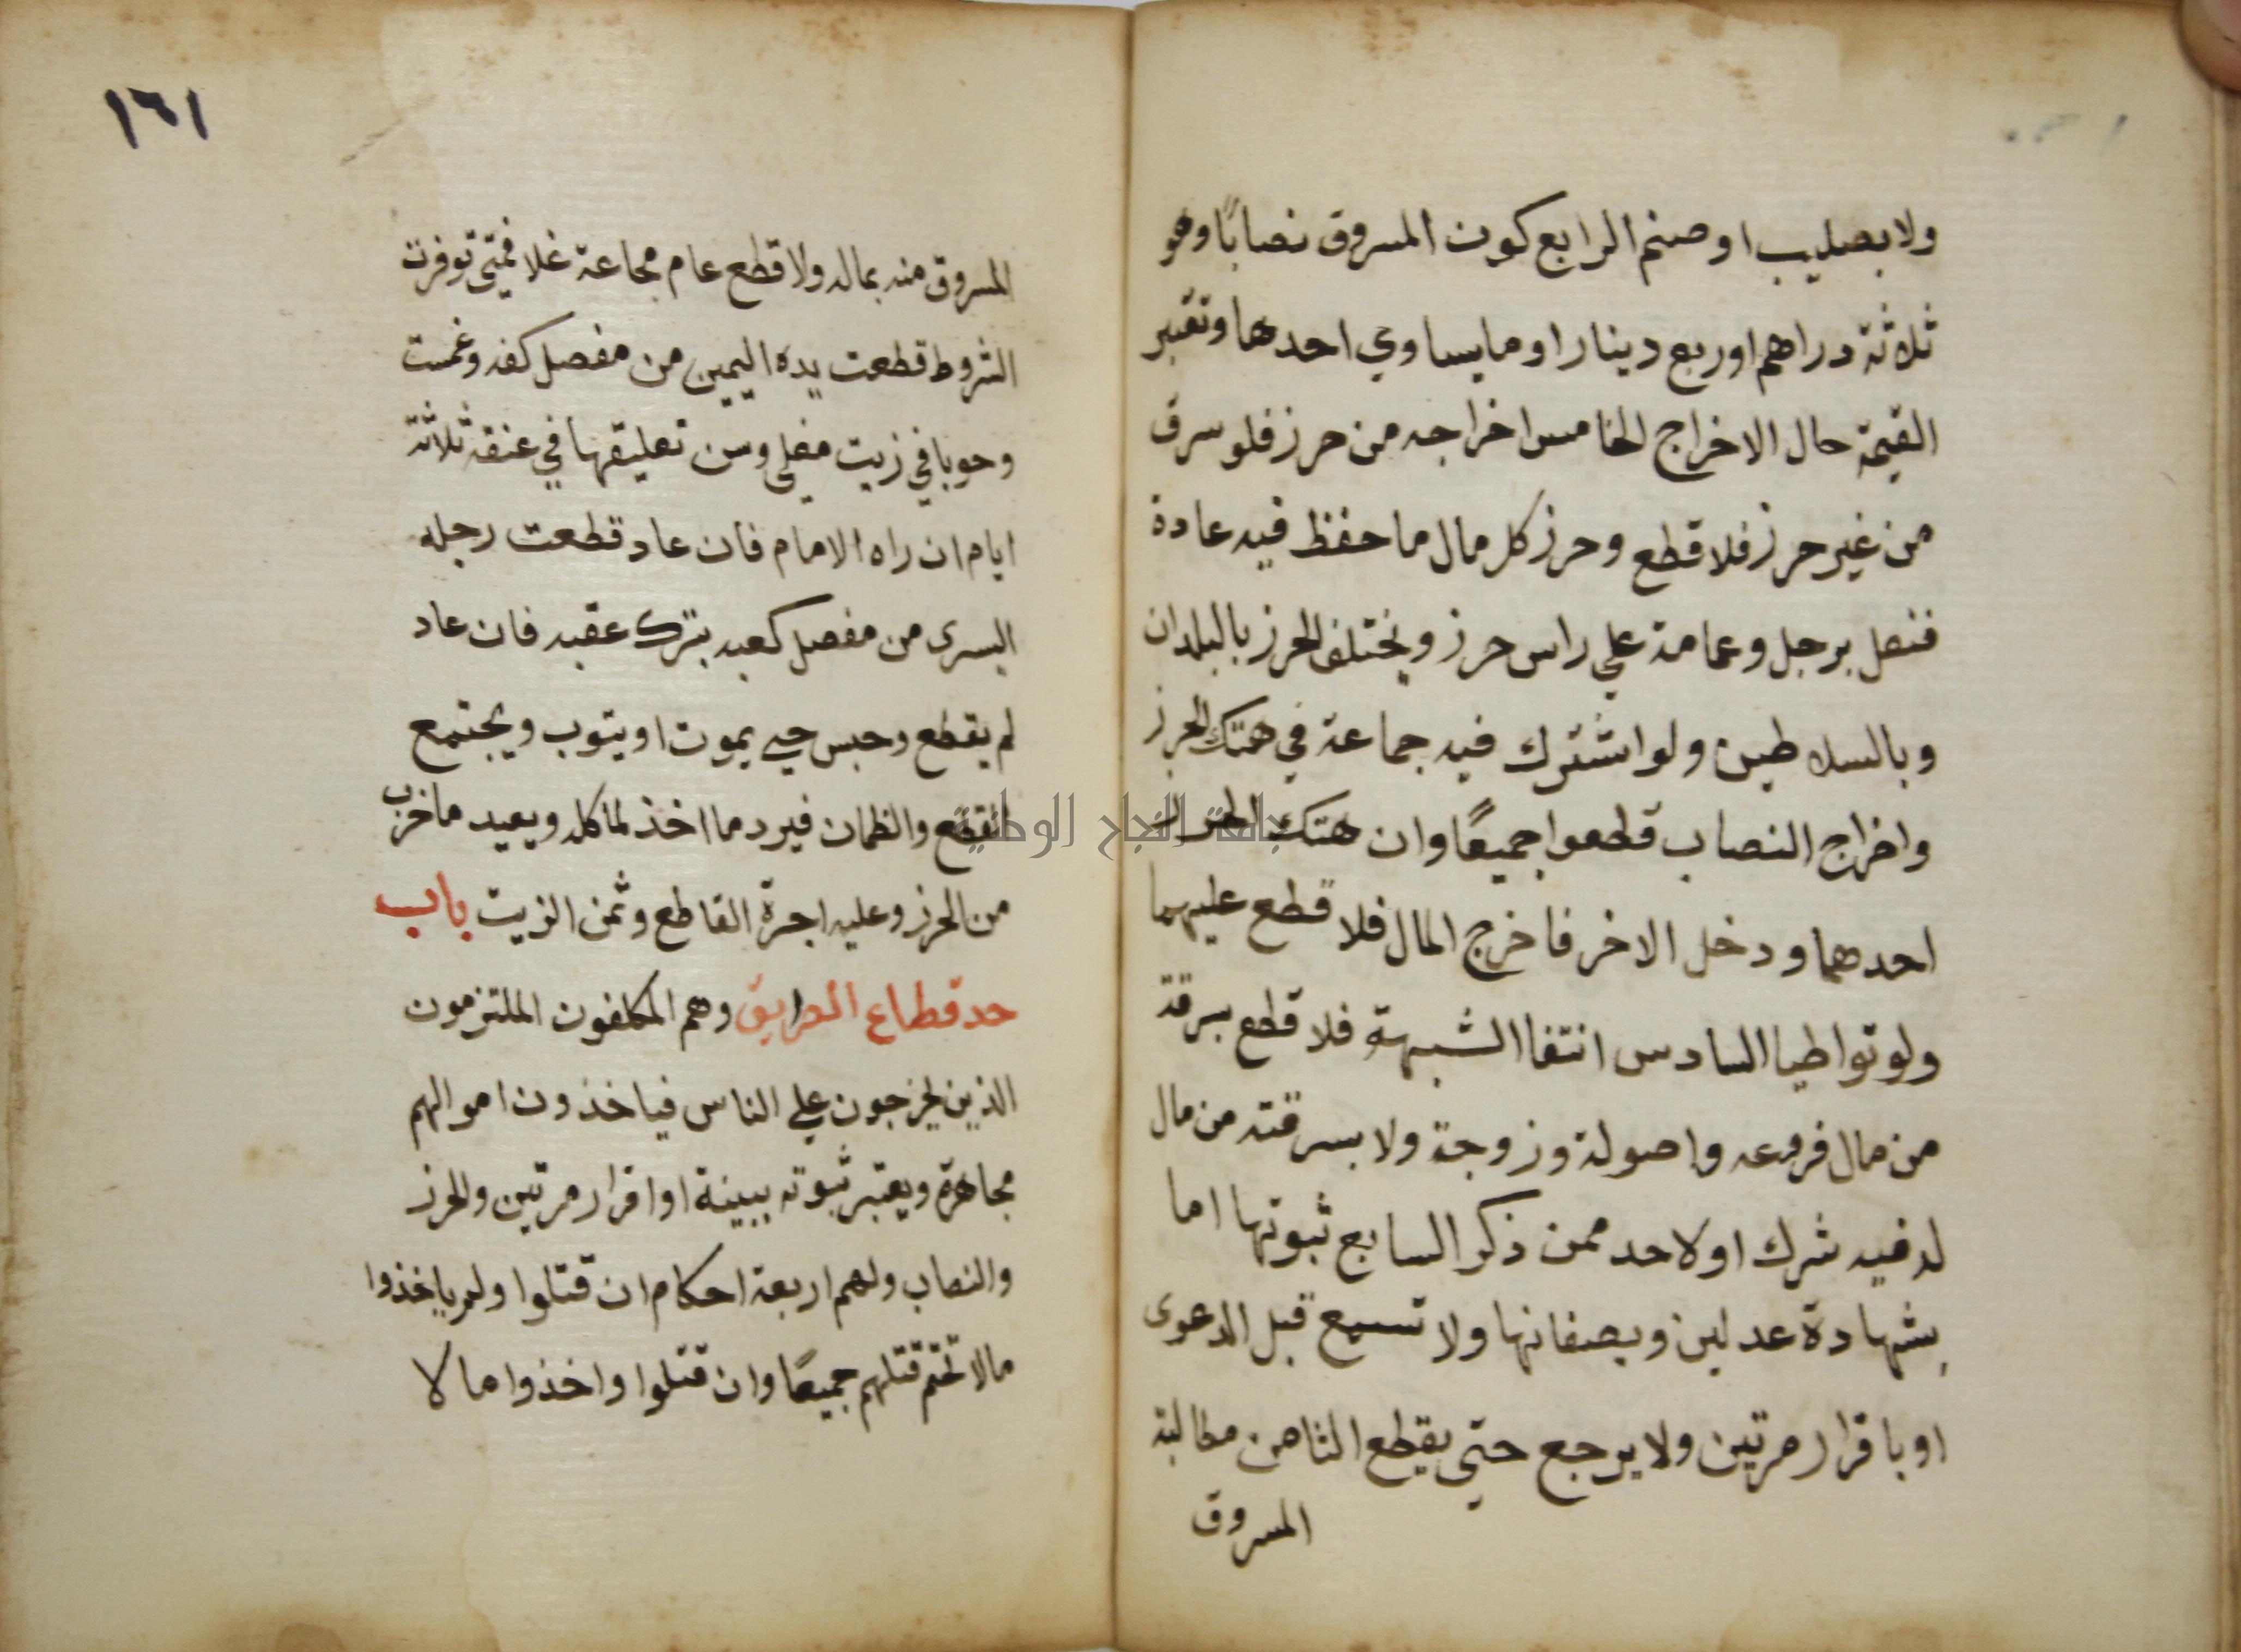 ولا بصليب او صنم الرابع كون المسروق نصابًا وهو
ثلاثة دراهم او ربع دينار او ما يساوي احدهما وتعتبر
القيمة حال الاخراج الخامس اخراجه من حرز فلو سرق
من غير حرز فلا قطع وحرز كل مال ما حفظ فيه عادة
فنعل برجل وعمامة علي راس حرز ويختلف الحرز بالبلدان
وبالسلاطين ولو اشترك فيه جماعة في هتك الحرز
واخراج النصاب قطعوا جميعًا وان هتك الحرز
احدهما ودخل الاخر فاخرج المال فلا قطع عليهما
ولو تواطيا السادس انتفا الشبهة فلا قطع بسرقة
من مال فروعه واصولة وزوجة ولا بسرقته من مال
له فيه شرك او لاحد ممن ذكر السابع ثبوتها اما
بشهادة عدلين ويصفانها ولا تسمع قبل الدعوى
او باقرار مرتين ولا يرجع حتي يقطع الثامن مطالبة
المسروق
جامعة النجاح الوطنية
١٦١
المسروق منه بماله ولا قطع عام مجاعة غلا فمتي توفرت
الشروط قطعت يده اليمين من مفصل كفه وغمست
وجوبا في زيت مغلي وسن تعليقها في عنقه ثلاثة
ايام ان راه الامام فان عاد قطعت رجله
اليسرى من مفصل كعبه بترك عقبه فان عاد
لم يقطع وحبس حتي يموت او يتوب ويجتمع
القطع والظمان فيرد ما اخذ لمالكه ويعيد ما خرب
من الحرز وعليه اجرة القاطع وثمن الزيت باب
حد قطاع الطريق وهم المكلفون الملتزمون
الذين يخرجون علي الناس فياخذون اموالهم
مجاهرة ويعتبر ثبوته ببينة او اقرار مرتين والحرز
والنصاب ولهم اربعة احكام ان قتلوا ولم ياخذوا
مالا تحتم قتلهم جميعًا وان قتلوا واخذوا مالا